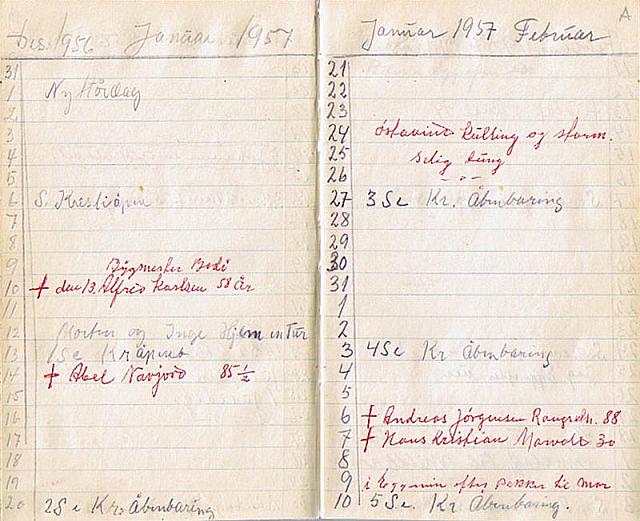 Des 1956 Januar 1957
31
1 Ny
2
3
4
5
6 S. Kr
7
8
9 Bygmester Bodi
10 + den 13. Alfred Karlsen 58 år
11
12 Morten og Inge Hjem en Tur
13 1 Se Kr åpenb
14 + Abel 85 1/2
15
16
17
18
19
20 2 S e Kr. Åbenbaring
Januar 1957 Februar A
21
22
23
24 Østavind kulling og storm.
25 Selig tung
26 - " -
27 3 Se Kr. Åbenbaring
28
29
30
31
1
2
3 4 Se Kr Åbenbaring
4
5
6 + Andreas Jörgensen 88
7 + Hans Kristian 30
8
9 i efter pakker til mor
10 5 Se. Kr. Åbenbaring.